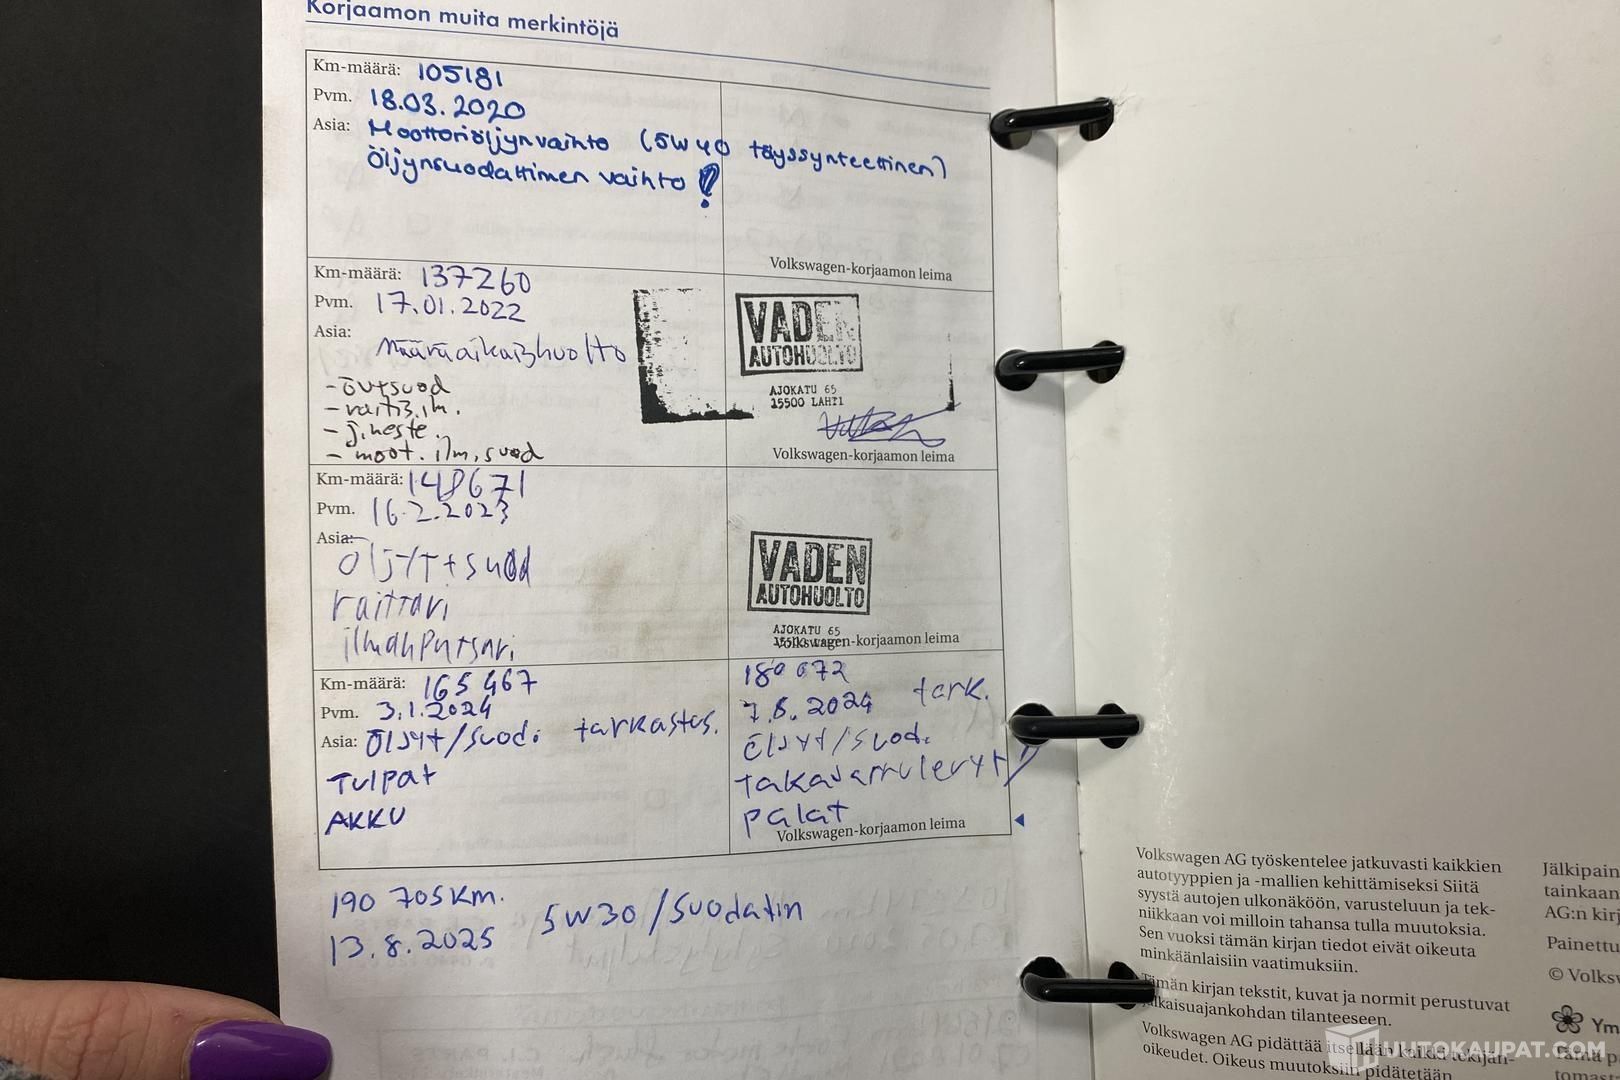 Korjaamon muita merkintöjä
Km-määrä: 105181
Pvm. 18.03.2020
Asia: Moottoriöljynvaihto (5W40 täyssynteettinen)
Öljynsuodattimen vaihto !
Volkswagen-korjaamon leima
Km-määrä: 137260
Pvm. 17.01.2022
Asia:
Määräaikaishuolto
- öv+suod
- raitis.ilm.
- j.neste.
- moot. ilm.suod
VADEN
AUTOHUOLTO
AJOKATU 65
15500 LAHTI
Volkswagen-korjaamon leima
Km-määrä: 148671
Pvm. 16.2.2023
Asia:
öljyt+suod
raittari
ilmanputsari
VADEN
AUTOHUOLTO
AJOKATU 65
Volkswagen-korjaamon leima
Km-määrä: 165 467
Pvm. 3.1.2024
Asia: Öljyt/suod. tarkastus.
Tulpat
AKKU
180 072
7.8.2024 tark.
Öljyt/suod.
takajarrulevyt/
palat
Volkswagen-korjaamon leima
190 705 km.
13.8.2025
5W30/suodatin
Volkswagen AG työskentelee jatkuvasti kaikkien
autotyyppien ja -mallien kehittämiseksi Siitä
syystä autojen ulkonäköön, varusteluun ja tek-
niikkaan voi milloin tahansa tulla muutoksia.
Sen vuoksi tämän kirjan tiedot eivät oikeuta
minkäänlaisiin vaatimuksiin.
Tämän kirjan tekstit, kuvat ja normit perustuvat
julkaisuajankohdan tilanteeseen.
Volkswagen AG pidättää itsellään kaikki tekijän-
oikeudet. Oikeus muutoksiin pidätetään
Jälkipain
tainkaan
AG:n kirj
Painettu
© Volks
Ym
UUTOKAUPAT.COM